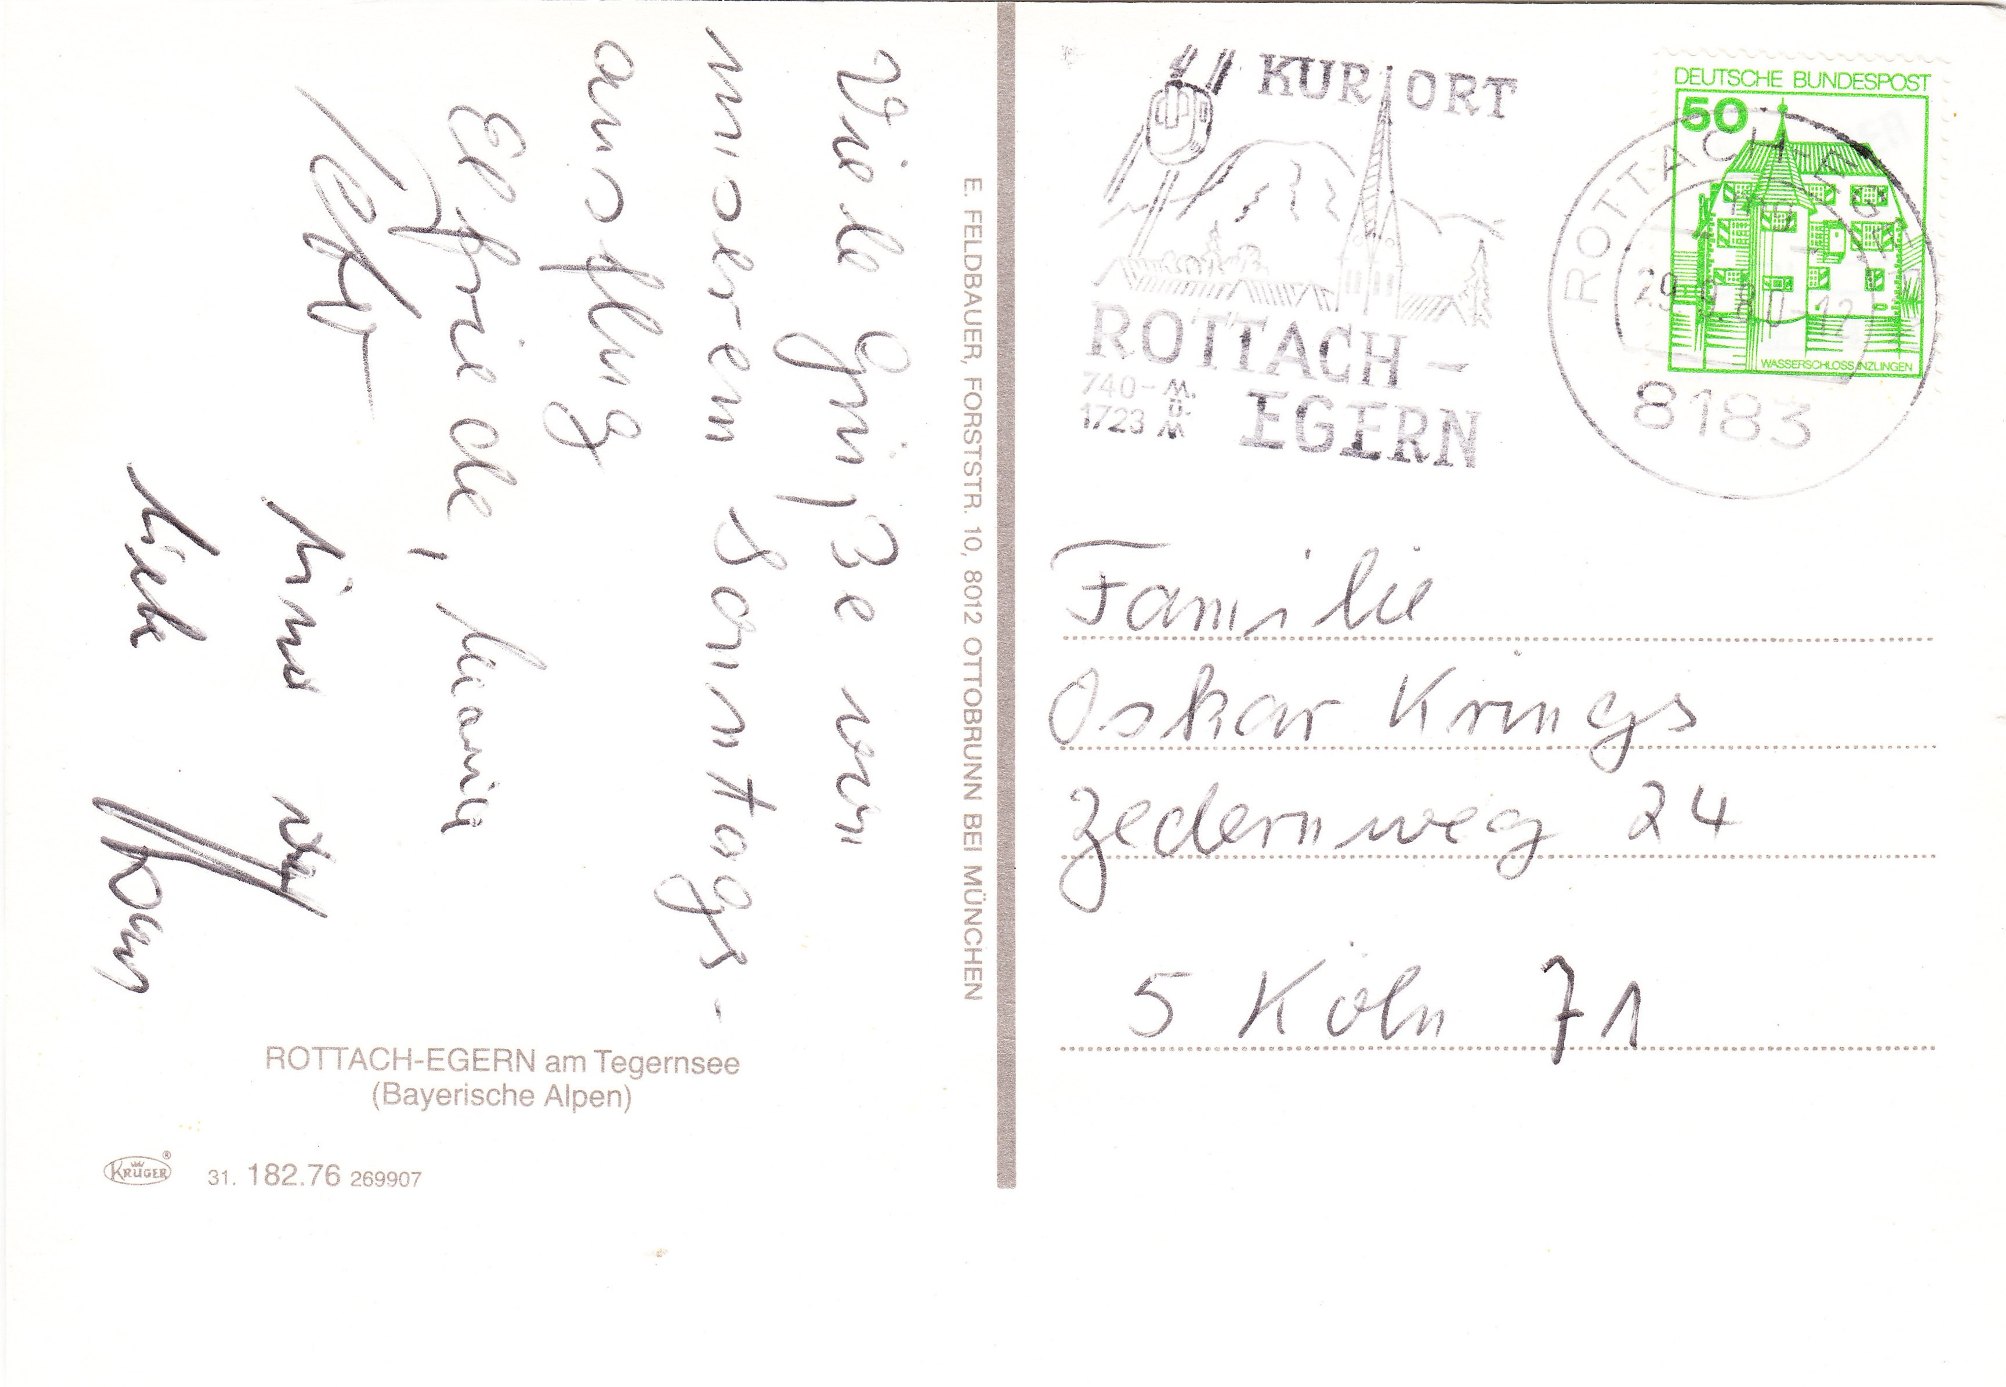 Viele Grüße von
unserem Sonntags-
ausflug
Elfriede,
ROTTACH-EGERN am Tegernsee
(Bayerische Alpen)
KRÜGER
31. 182.76 269907
E. FELDBAUER, FORSTSTR. 10, 8012 OTTOBRUNN BEI MÜNCHEN
KURORT
ROTTACH-
EGERN
740- M.
Ü.
1723 M
DEUTSCHE BUNDESPOST
50
WASSERSCHLOSS INZLINGEN
ROTTACH-EGERN
8183
Familie
Oskar Krings
Zedernweg 24
5 Köln 71